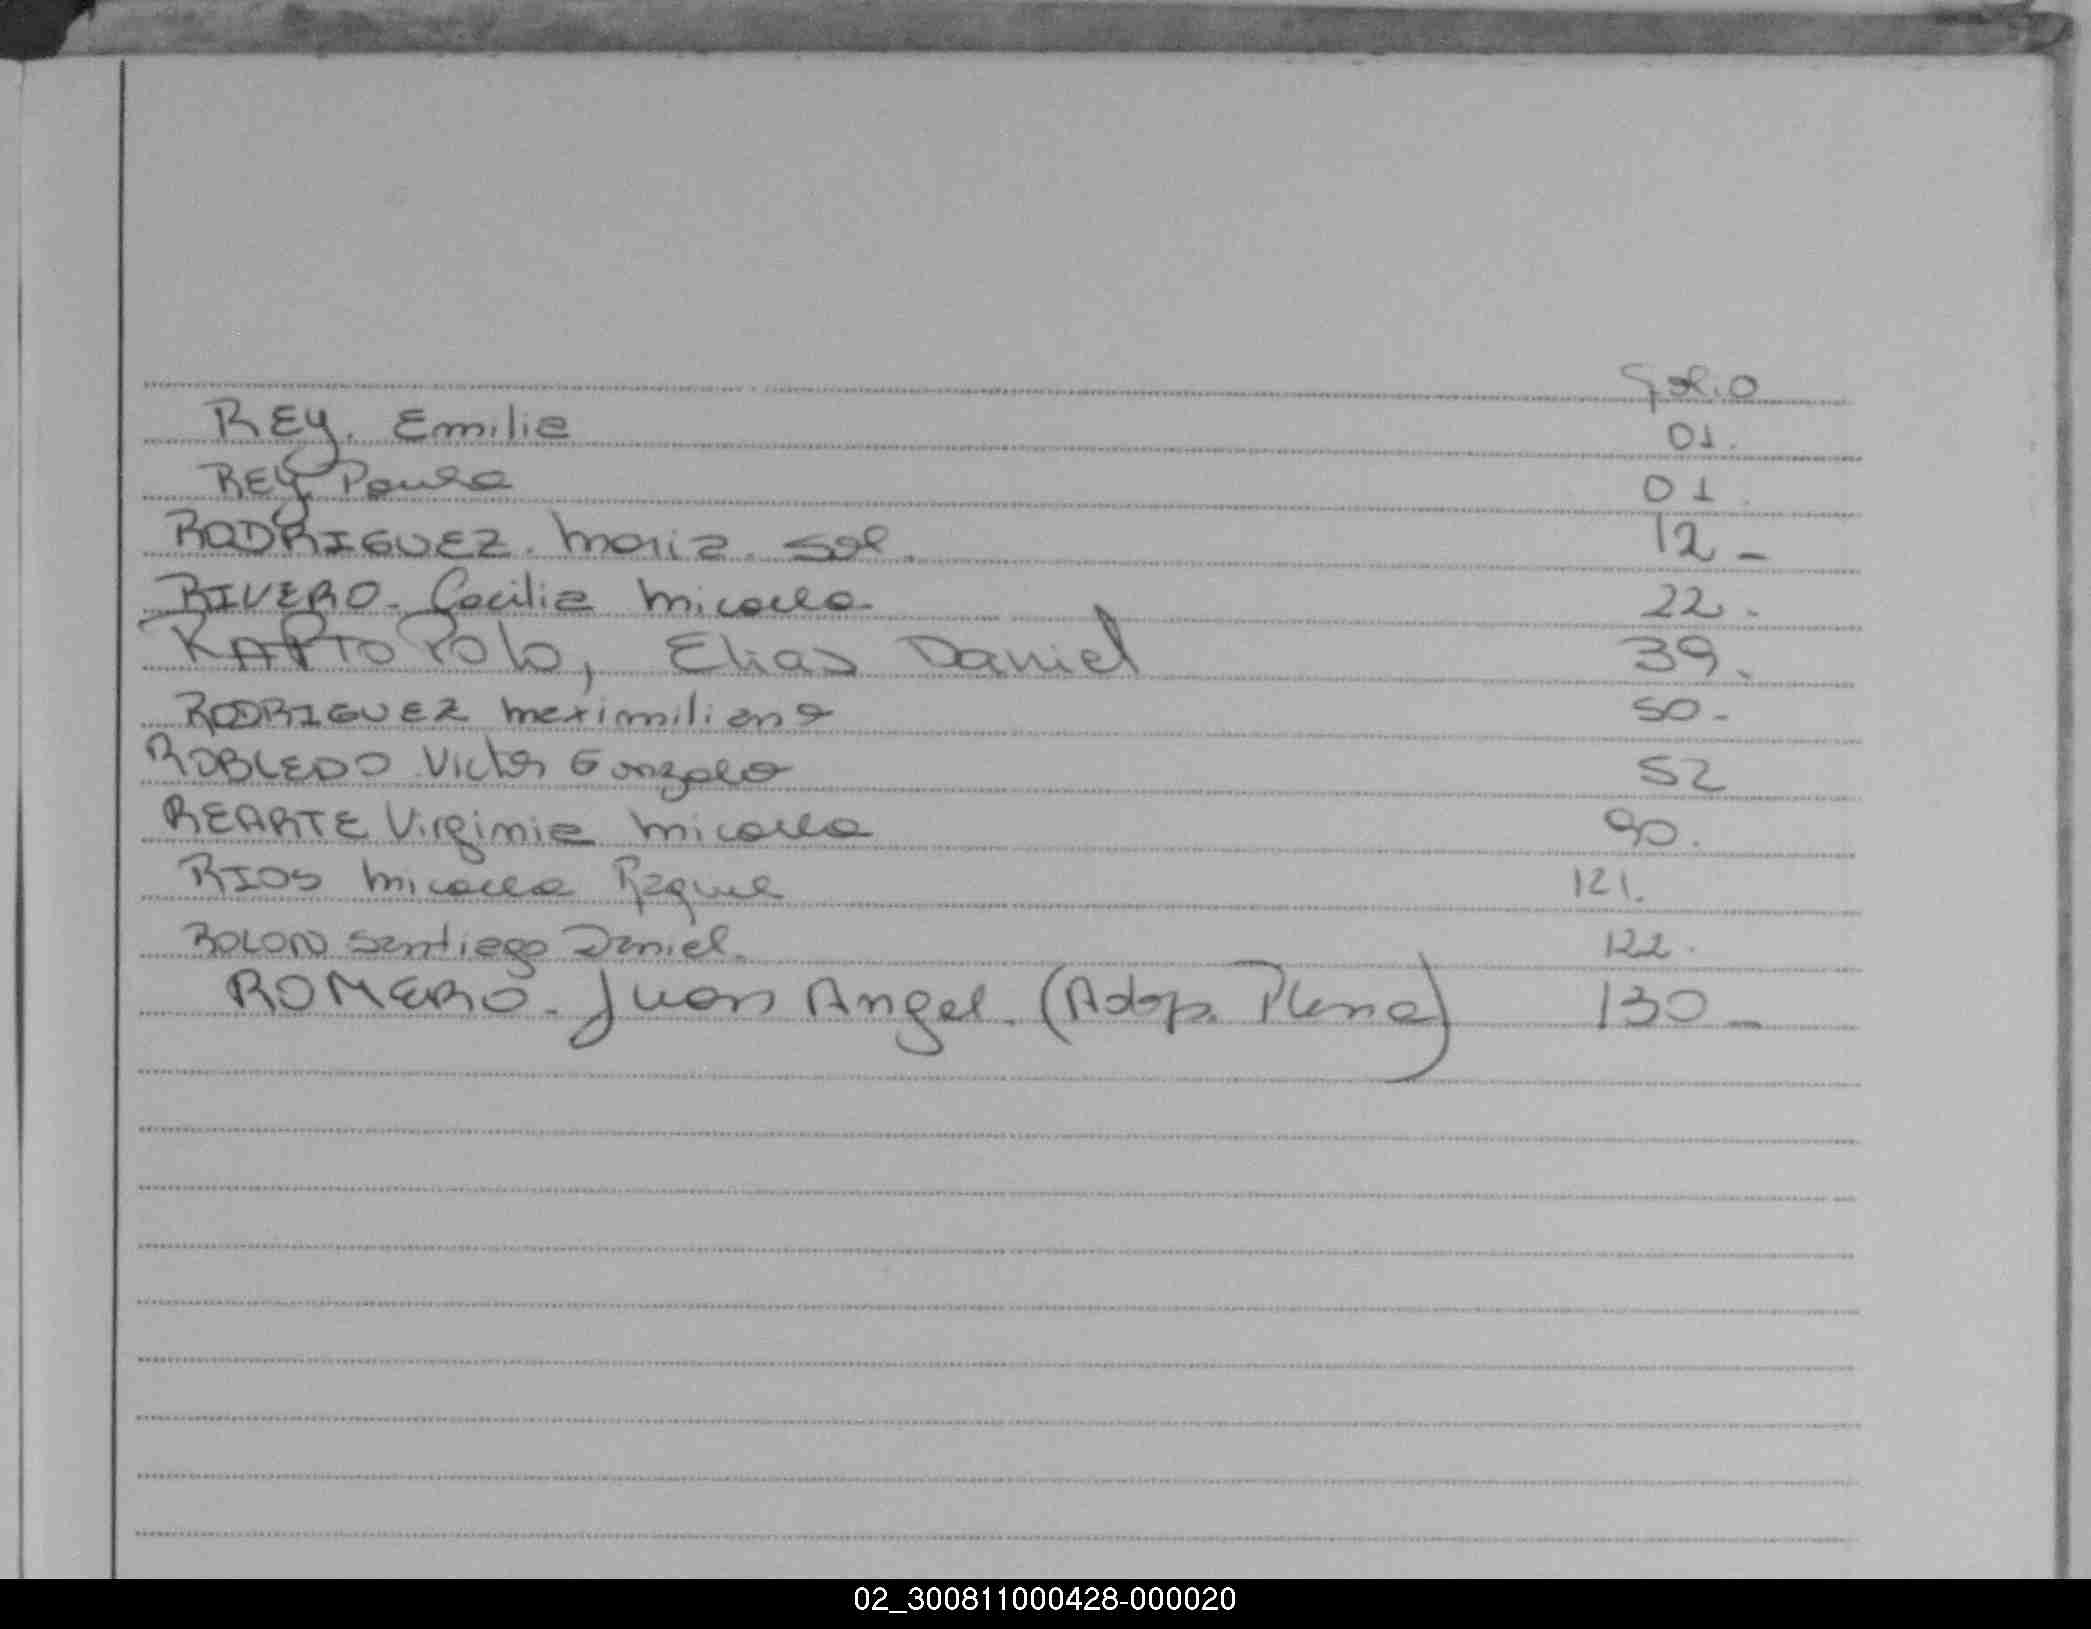 Folio
REY. Emilia 01.
REY Paula 01.
RODRIGUEZ. Maria. Sol. 12_
RIVERO_ Cecilia Micaela. 22.
RAPTOPOLO, Elias Daniel 39.
RODRIGUEZ Maximiliano 50_
ROBLEDO Victor Gonzalo 52
REARTE Virginia Micaela 90.
RIOS Micaela Raquel 121.
ROLON Santiago Daniel. 122.
ROMERO_ Juan Angel. (Adop. Plena) 130_
02_300811000428-000020